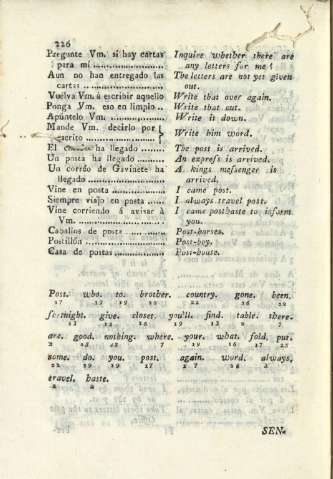 226
Pergunte Vm. si hay cartas
para mi
Inquire whether there are
any letters for me
Aun no han entregado las
cartas
The letters are not yet given
out.
Vuelva Vm. á escribir aquello
Write that over again.
Ponga Vm. eso en limpio
Write that out.
Apúntelo Vm.
Write it down.
Mande Vm. decirlo por
escrito
Write him word.
El ha llegado
The post is arrived.
Un posta ha llegado
An express is arrived.
Un corréo de Gavinete ha
llegado
A kings messenger is
arrived.
Vine en posta
I came post.
Siempre viajo en posta
I always travel post.
Vine corriendo á avisar à
Vm.
I came posthaste to inform
you.
Caballos de posta
Post-horses.
Postillón
Post-boy.
Casa de postas
Post-house.
Post. who. to. brother. country. gone. been.
fortnight. give. closet. you'll. find. table. there-
are. good. nothing. where. your. what. fold. put.
some. do. you. post. again. word. always,
travel. haste.
2 2
SEN-